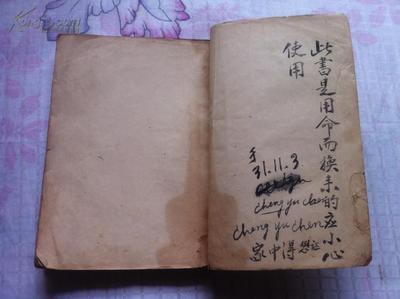 此書是用命而换来的应小心
使用
于
31.11.3
cheng yu chen
cheng yu chen
家中得